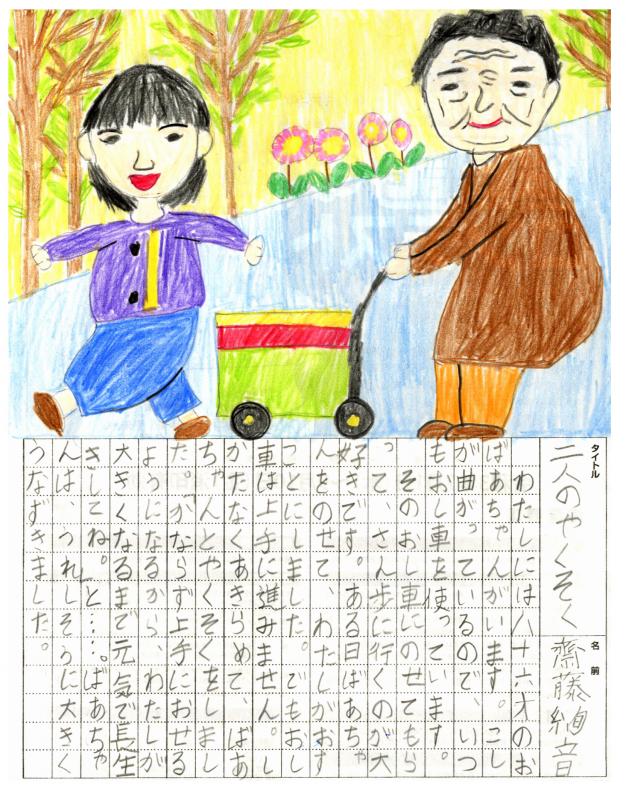 タイトル
二人のやくそく
名前
齋藤絢音
わたしには八十六才のお
ばあちゃんがいます。こし
が曲がっているので、いつ
もおし車を使っています。
そのおし車にのせてもら
って、さん歩に行くのが大
好きです。ある日ばあちゃ
んをのせて、わたしがおす
ことにしました。でもおし
車は上手に進みません。し
かたなくあきらめて、ばあ
ちゃんとやくそくをしまし
た。「かならず上手におせる
ようになるから、わたしが
大きくなるまで元気で長生
きしてね。」と……。ばあちゃ
んは、うれしそうに大きく
うなずきました。